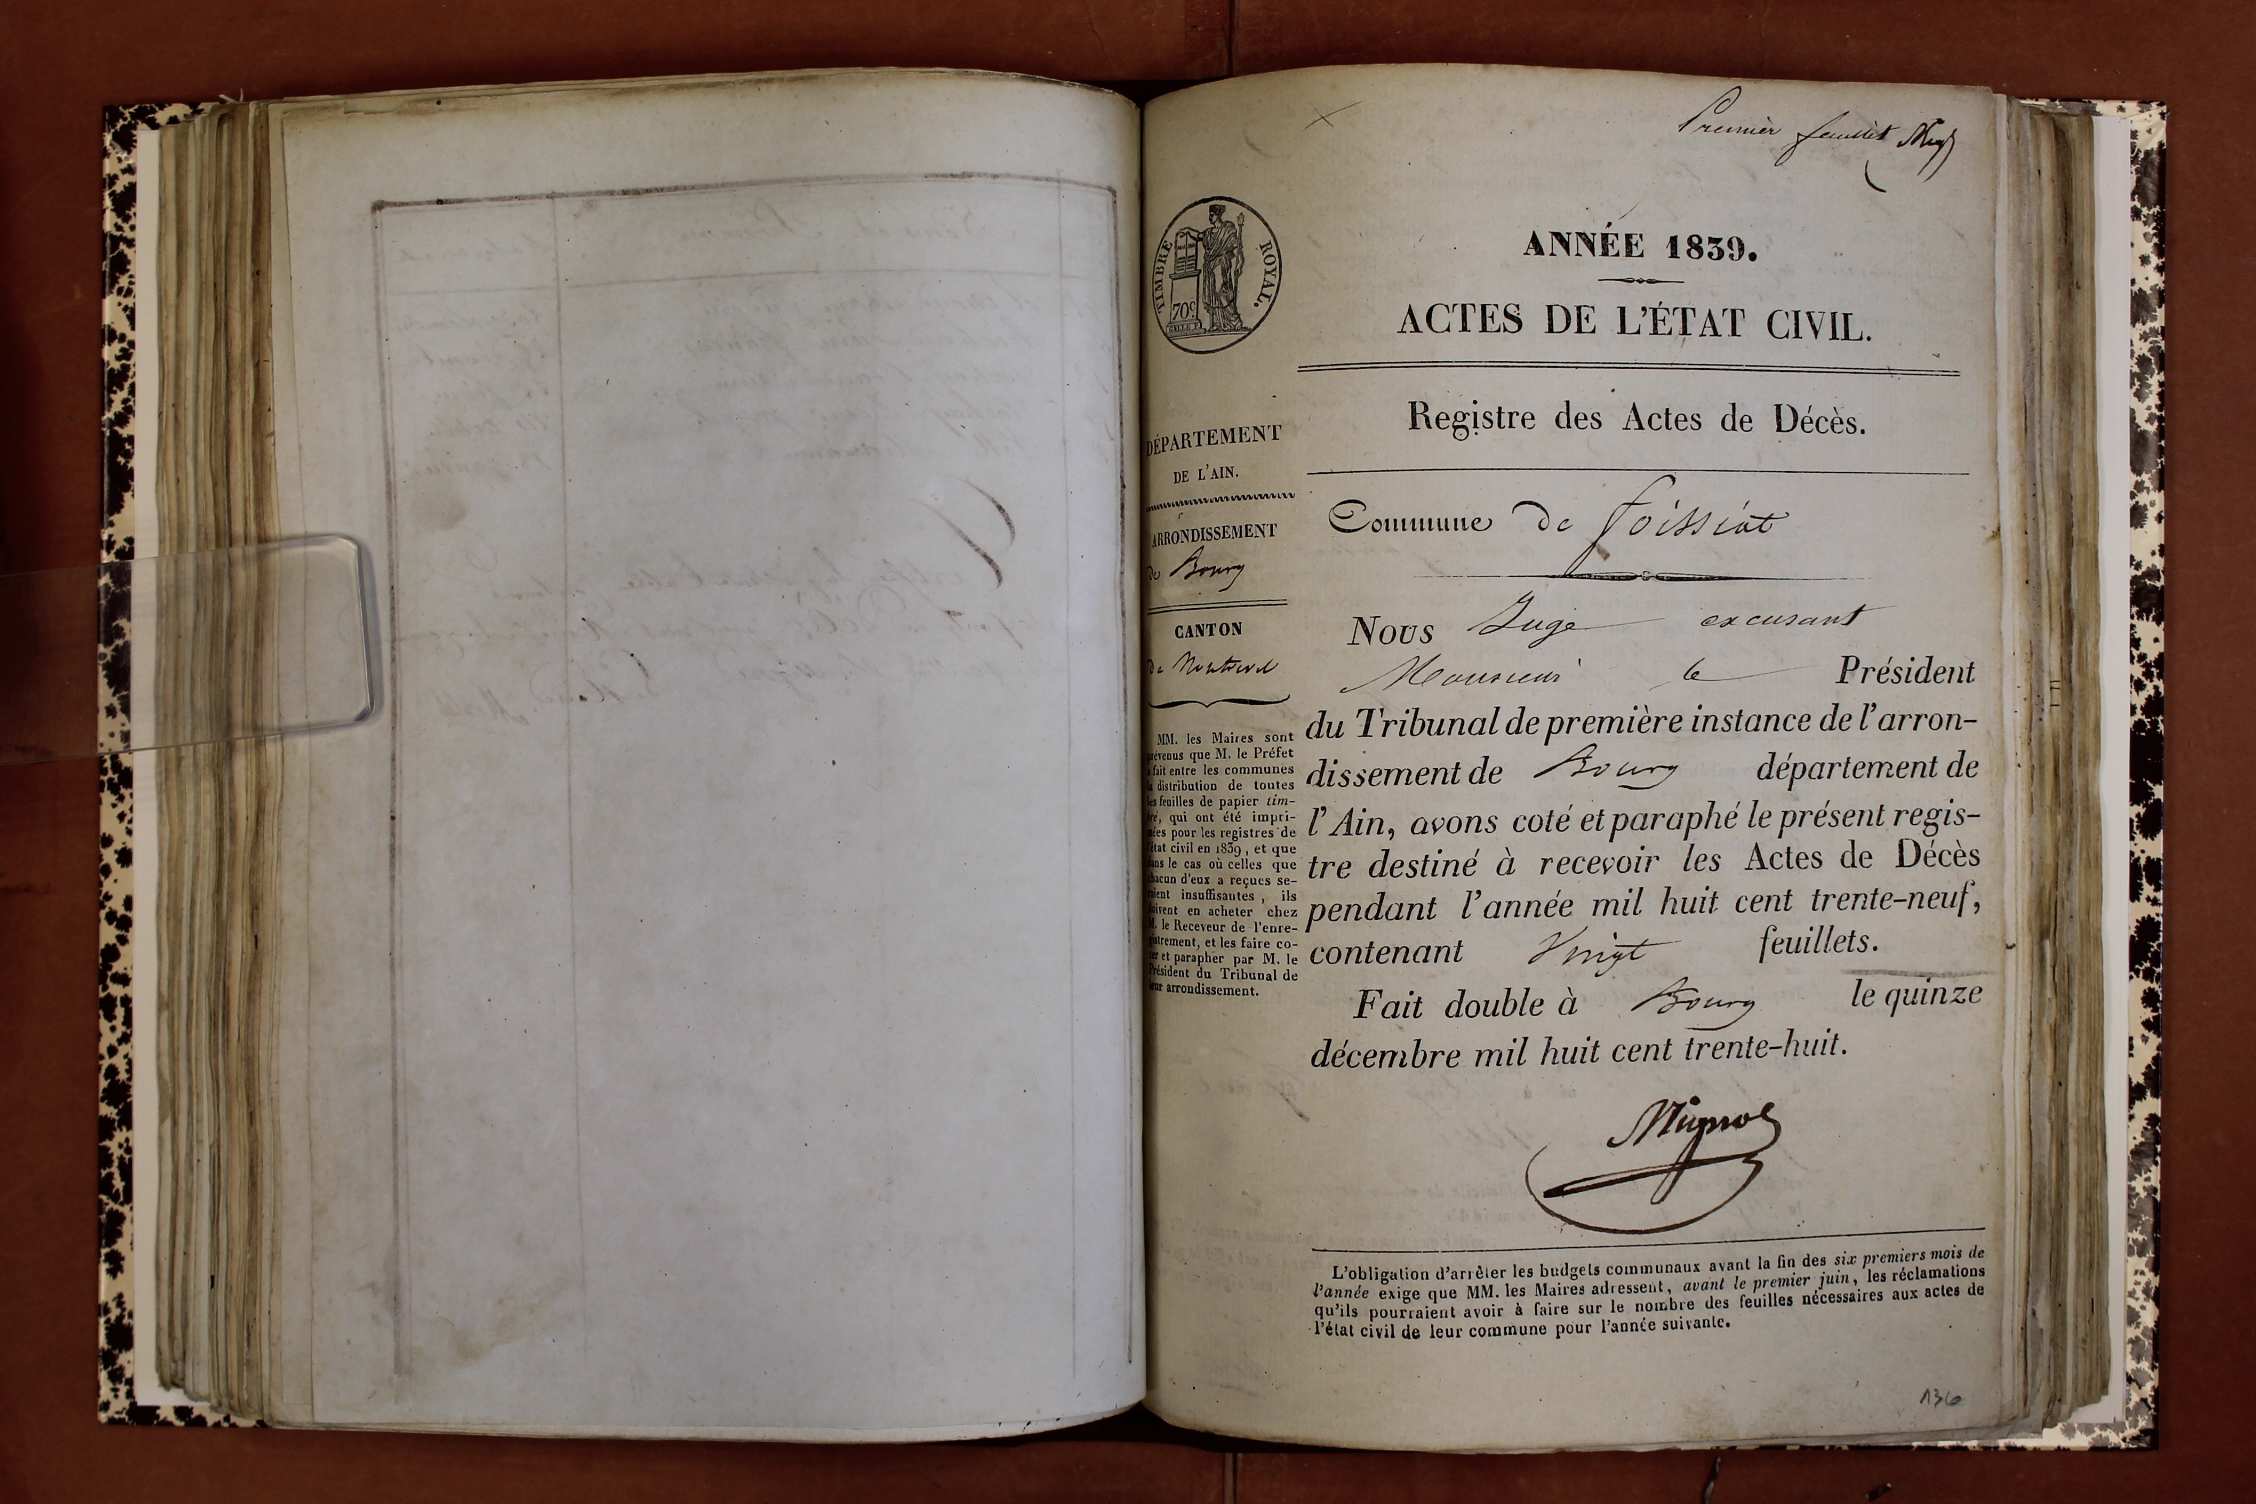 Premier feuillet
TIMBRE ROYAL.
70c
ANNÉE 1839.
ACTES DE L'ÉTAT CIVIL.
Registre des Actes de Décès.
DÉPARTEMENT
DE L'AIN.
ARRONDISSEMENT
de Bourg
CANTON
de Montrevel
MM. les Maires sont
prévenus que M. le Préfet
a fait entre les communes
la distribution de toutes
les feuilles de papier tim-
bré, qui ont été impri-
mées pour les registres de
l'état civil en 1839, et que
dans le cas où celles que
chacun d'eux a reçues se-
raient insuffisantes, ils
doivent en acheter chez
M. le Receveur de l'enre-
gistrement, et les faire co-
ter et parapher par M. le
Président du Tribunal de
leur arrondissement.
Commune de foissiat
Nous Juge excusant
Monsieur le Président
du Tribunal de première instance de l'arron-
dissement de Bourg département de
l'Ain, avons coté et paraphé le présent regis-
tre destiné à recevoir les Actes de Décès
pendant l'année mil huit cent trente-neuf,
contenant Vingt feuillets.
Fait double à Bourg le quinze
décembre mil huit cent trente-huit.
L'obligation d'arrêter les budgets communaux avant la fin des six premiers mois de
l'année exige que MM. les Maires adressent, avant le premier juin, les réclamations
qu'ils pourraient avoir à faire sur le nombre des feuilles nécessaires aux actes de
l'état civil de leur commune pour l'année suivante.
136